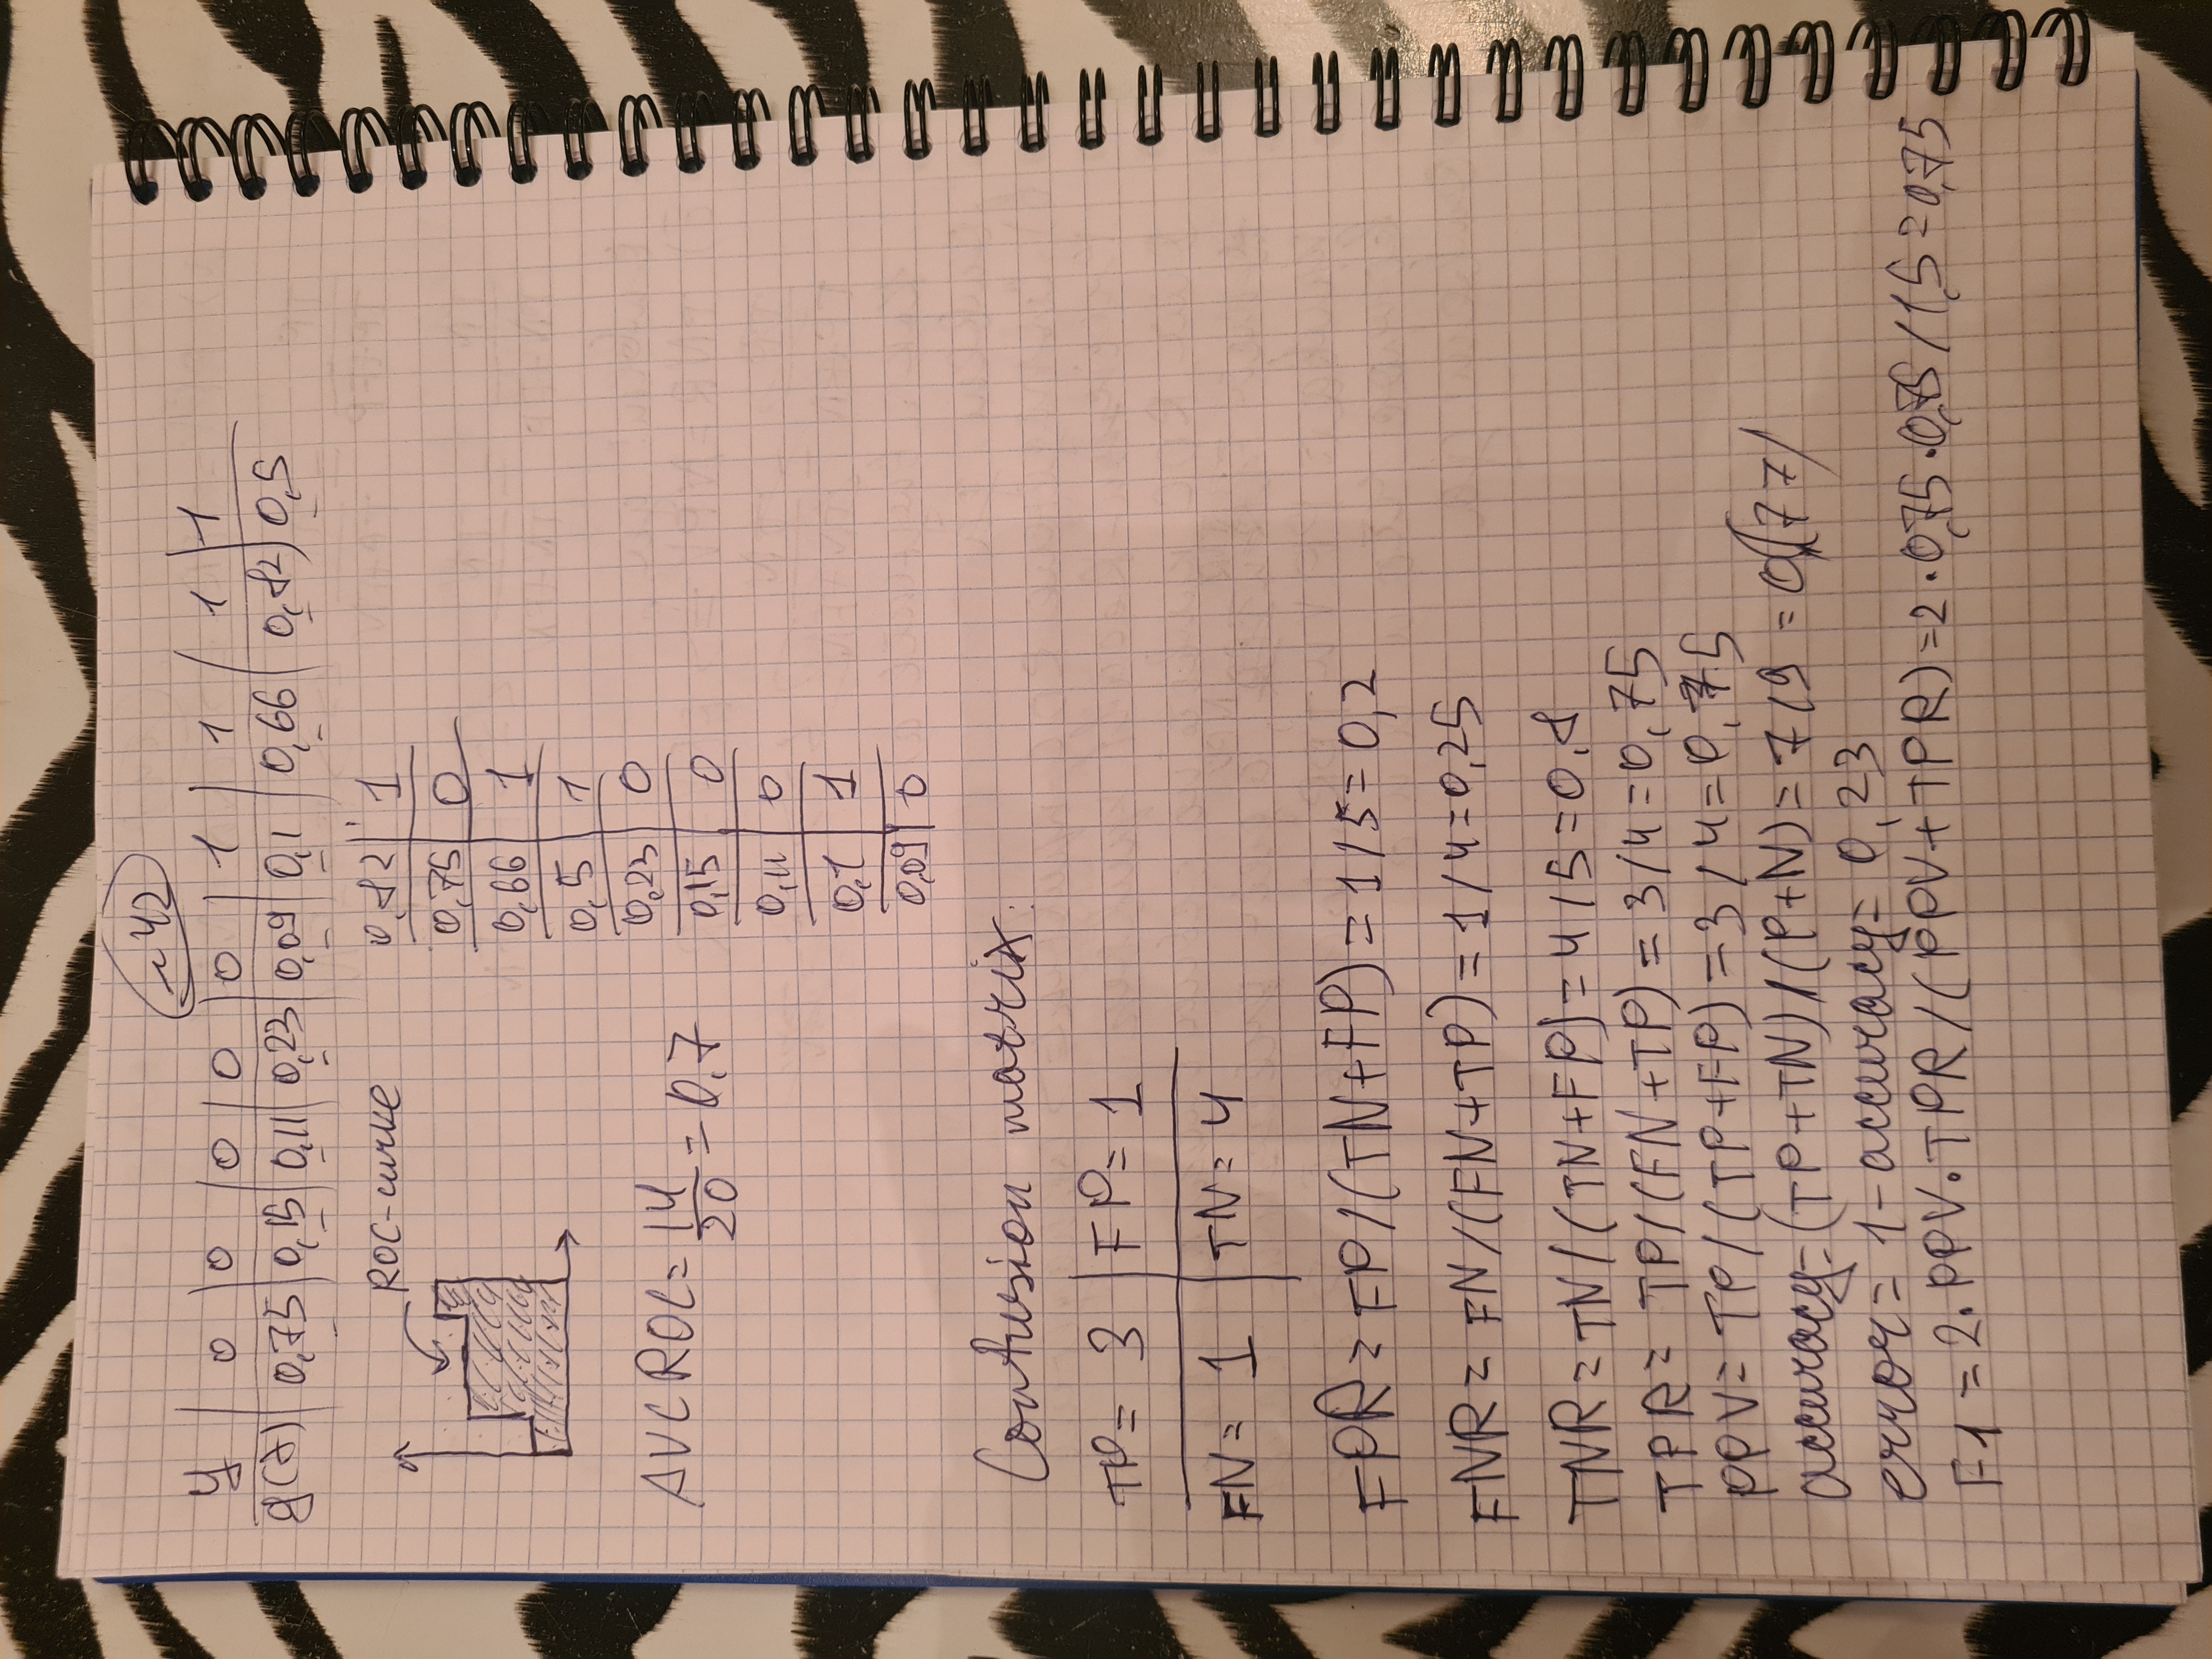 ~42
y | 0 | 0 | 0 | 0 | 0 | 1 | 1 | 1 | 1
g(x) | 0,75 | 0,15 | 0,11 | 0,23 | 0,09 | 0,1 | 0,66 | 0,82 | 0,5
ROC-curve
0,82 | 1
0,75 | 0
0,66 | 1
0,5 | 1
0,23 | 0
0,15 | 0
0,11 | 0
0,1 | 1
0,09 | 0
AVC ROC = 14/20 = 0,7
Confusion matrix:
TP = 3 | FP = 1
FN = 1 | TN = 4
FPR = FP/(TN+FP) = 1/5 = 0,2
FNR = FN/(FN+TP) = 1/4 = 0,25
TNR = TN/(TN+FP) = 4/5 = 0,8
TPR = TP/(FN+TP) = 3/4 = 0,75
PPV = TP/(TP+FP) = 3/4 = 0,75
accuracy = (TP+TN)/(P+N) = 7/9 = 0,(77)
error = 1-accuracy = 0,23
F1 = 2·PPV·TPR/(PPV+TPR) = 2·0,75·0,75/1,5 = 0,75